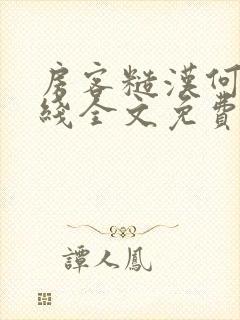 房客糙漢何
綫全文免費
譚人鳳